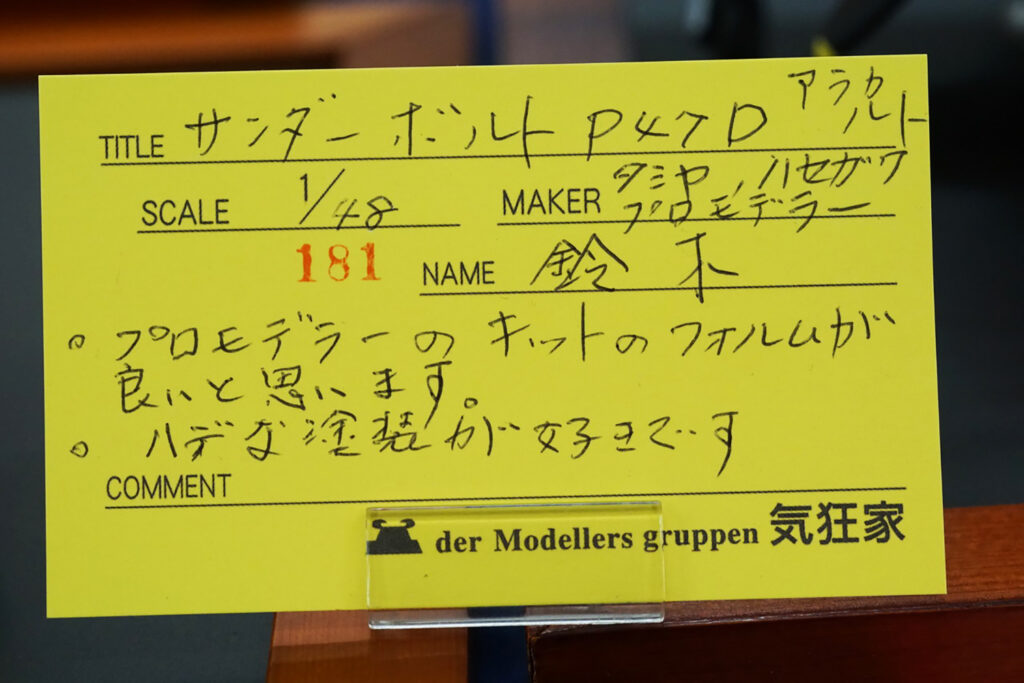 TITLE サンダーボルト P47D アラカルト
SCALE 1/48
MAKER タミヤ, ハセガワ
プロモデラー
181
NAME 鈴木
。プロモデラーのキットのフォルムが
良いと思います。
。ハデな塗装が好きです
COMMENT
der Modellers gruppen 気狂家